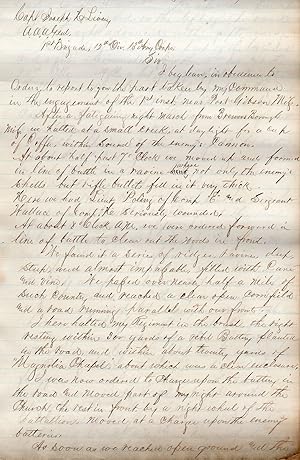 Capt Joseph H Lion,
A.A.A. Genl,
1st Brigade, 12th Div 13th Army Corps
Sir.
I beg leave, in obedience to
Orders, to report to you the part taken by my Command
in the engagement of the 1st inst near Port Gibson Miss.
After a fatiguing night march from
Miss, we halted at a small creek, at day light for a cup
of coffee, within sound of the enemy's Cannon.
At about half past 7 o'clock we moved up and formed
in line of battle in a ravine where not only the enemy's
shells but rifle bullets fell in it very thick.
Here we had Lieut Poling of Comp C and Sergeant
Wallace of Comp K seriously wounded.
At about 8 o'clock A.M. we were ordered forward in
line of battle to clear out the woods in front.
We found it a series of ridges & ravines, deep,
steep, and almost impassable, filled with Cane
and Vines. We passed over nearly half a mile of
such Country and reached a clear open Cornfield
and a road running parallel with our front.
I here halted my Regiment in the brush, the right
resting within 200 yards of a rebel Battery planted
in the road, and within about twenty yards of
Magnolia Chapel, about which was a clean enclosure.
I was now ordered to Charge upon the battery in
the road and moved part of my right around the
Church, the rest in front by a right wheel of the
battalion & moved at a Charge upon the enemy's
batteries.
As soon as we reached open ground and the